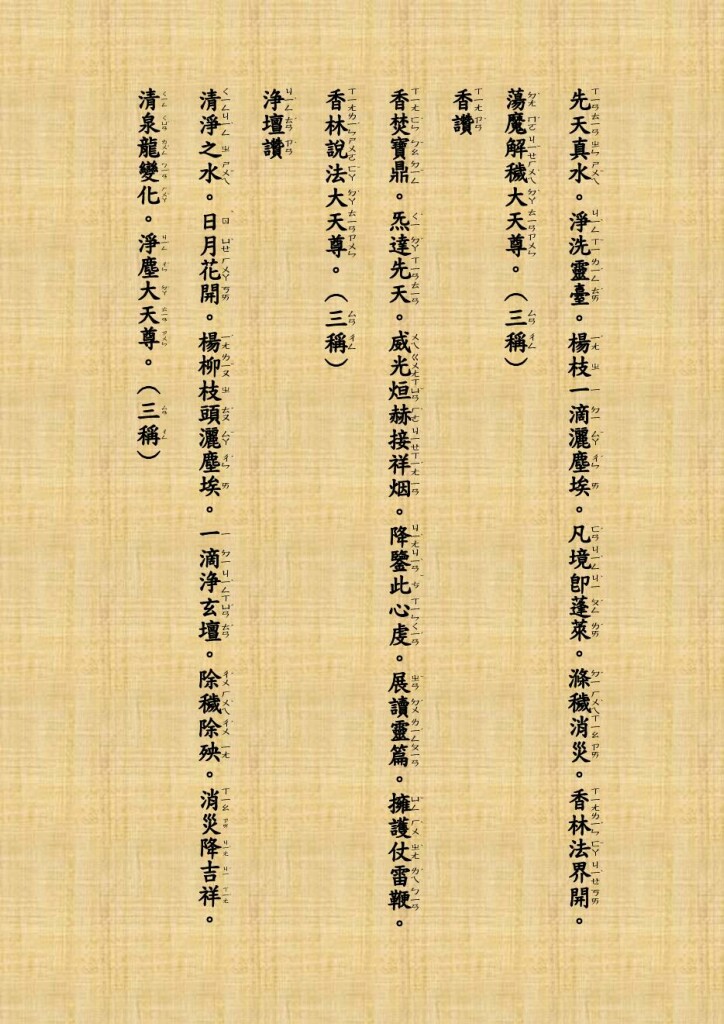 先天真水。淨洗靈臺。楊枝一滴灑塵埃。凡境即蓬萊。滌穢消災。香林法界開。
蕩魔解穢大天尊。（三稱）
香讚
香焚寶鼎。炁達先天。威光烜赫接祥烟。降鑒此心虔。展讀靈篇。擁護仗雷鞭。
香林說法大天尊。（三稱）
淨壇讚
清淨之水。日月花開。楊柳枝頭灑塵埃。一滴淨玄壇。除穢除殃。消災降吉祥。
清泉龍變化。淨塵大天尊。（三稱）